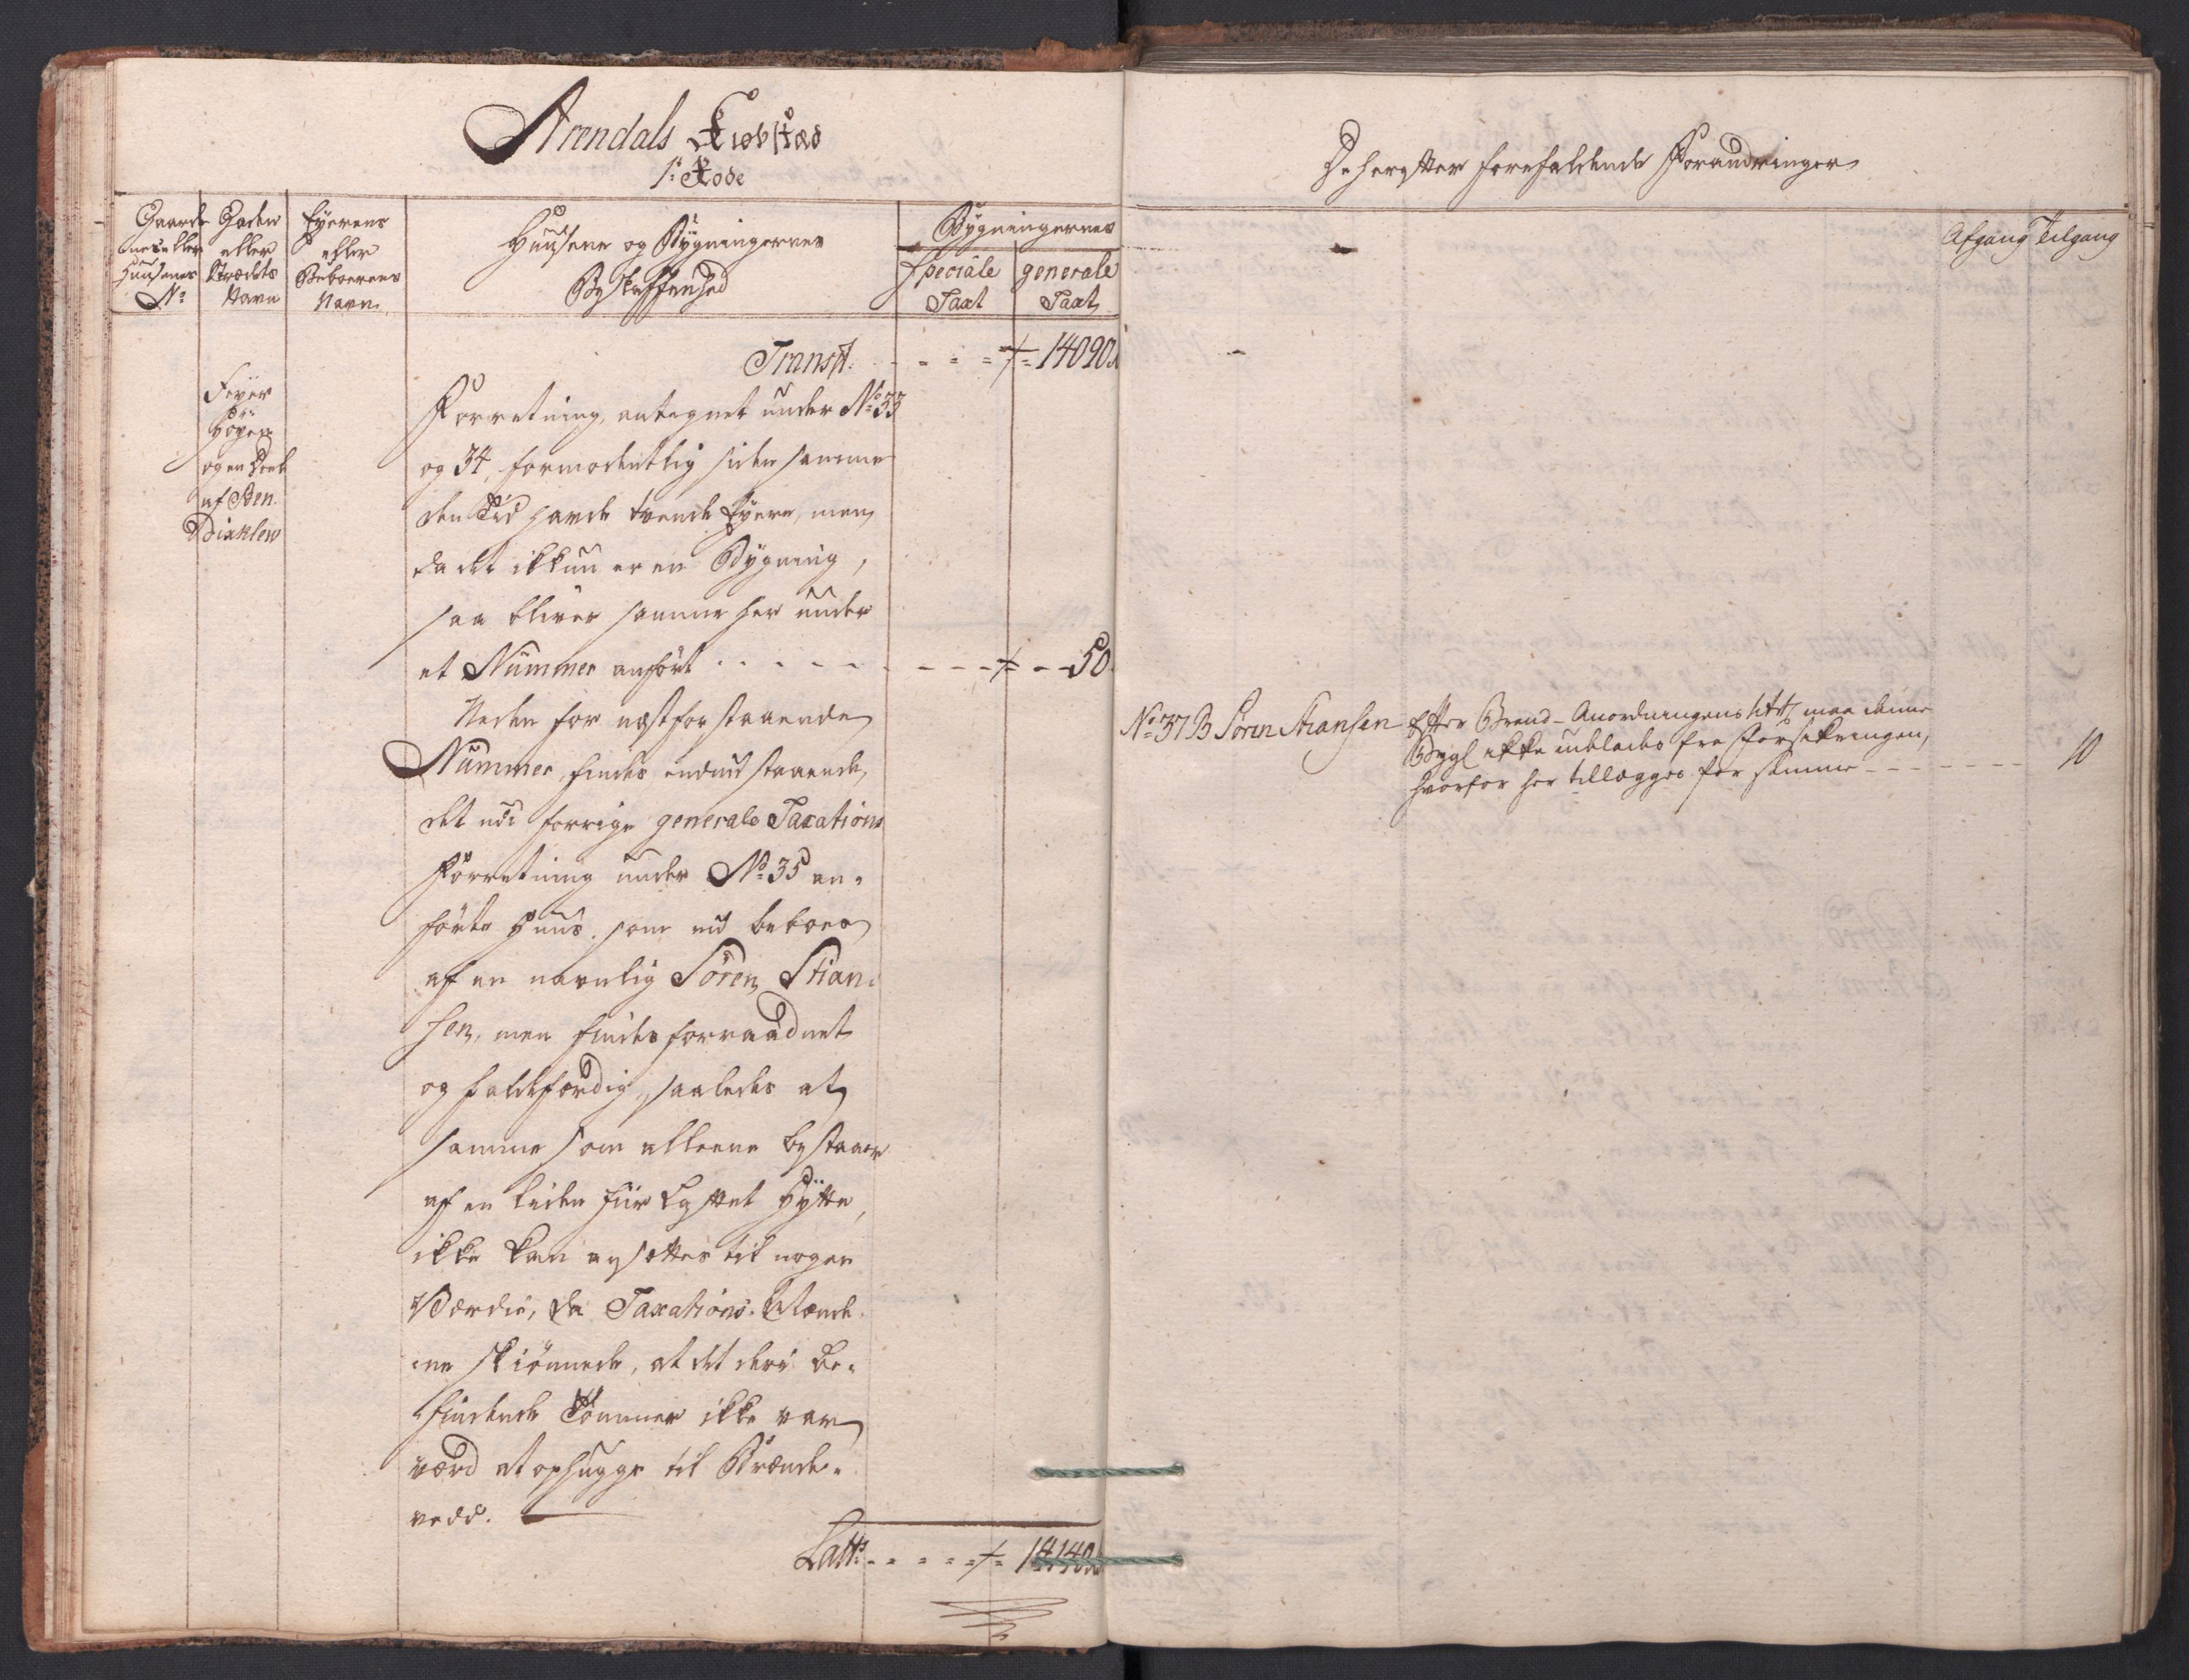 Arendals Kiøbstæd
1: Rode
Gaarde
nes eller
Huusenes
No
Gaden
eller
Strædets
Navn
Eyerens
eller
Beboerens
Navn.
Huusene og Bygningernes
Beskaffenhed
Bygningernes
speciale
Taxt
generale
Taxt
Transpt: - - - 14090
Feyer
Høyen
og en Deel
af Ben.
Dixklev
Forretning, antegnet under No: 33
og 34, formodentlig siden samme
den Tid havde tvende Eyere, men
da det ikkun er en Bygning,
saa bliver samme her under
et Nummer anført - - - - - - - 50.
Neden for næstforstaaende
Nummer, findes endnu staaende,
det udi forrige generale Taxations
Forretning under No: 35 an-
førte Huus, som nu beboes
af en navnlig Søren Stian-
sen, men findes forraadnet
og faldefærdig, saaledes at
samme som alleene bestaaer
af en liden Hytte,
ikke kan ansættes til nogen
Værdie, da Taxations-Mænde-
ne skiønnede, at det deri be-
findende Tømmer ikke var
værd at ophugge til Brænde-
vedd.
Latt: - - - - - 14140
De herefter forefaldende Forandringer
Afgang Tilgang
No: 37 B Søren Stiansen
Efter Brand-Anordningens maa denne
Bygn ikke udelades fra Forsikringen,
hvorfor her tillægges for samme - - - - - - 10